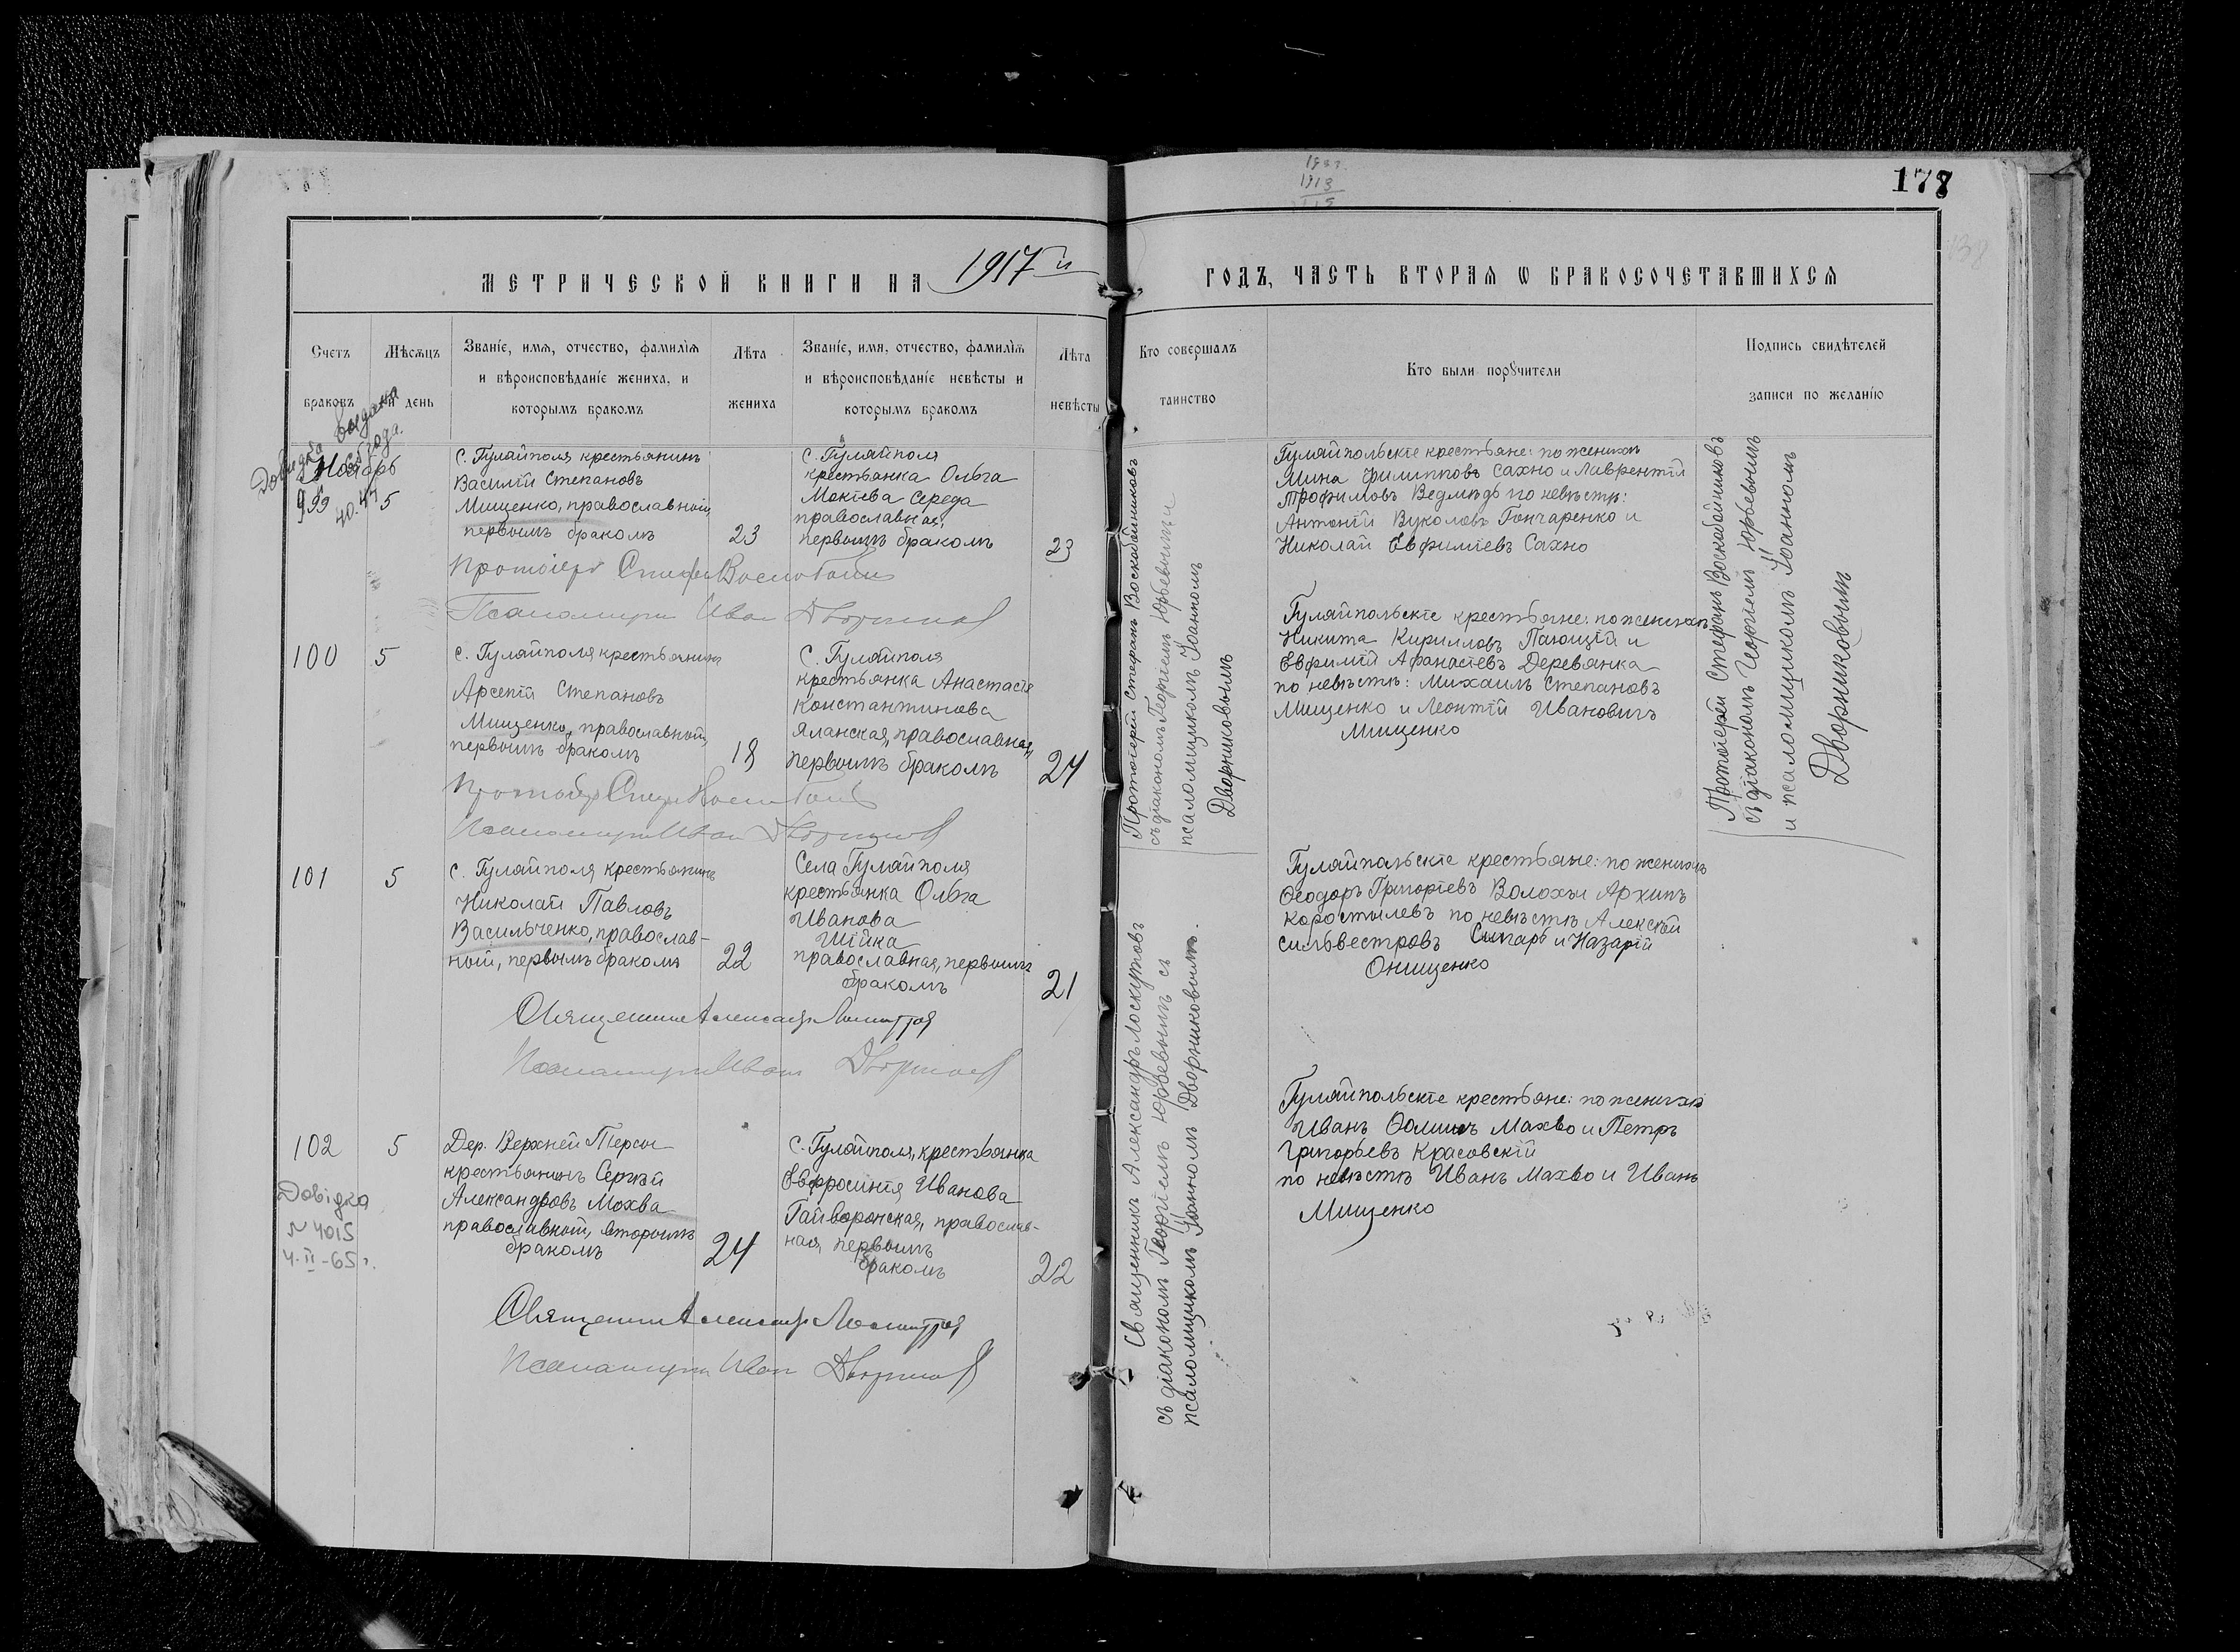 178
МЕТРИЧЕСКОЙ КНИГИ НА 1917 й
ГОДЪ, ЧАСТЬ ВТОРАЯ Ѡ БРАКОСОЧЕТАВШИХСЯ
Счетъ браковъ
Мѣсяцъ и день
Званіе, имя, отчество, фамилія
и вѣроисповѣданіе жениха, и
которымъ бракомъ
Лѣта
жениха
Званіе, имя, отчество, фамилія
и вѣроисповѣданіе невѣсты и
которымъ бракомъ
Лѣта
невѣсты
Кто совершалъ
таинство
Кто были порꙋчители
Подпись свидѣтелей
записи по желанію
99
5
с. Гуляйполя крестьянинъ
Василій Степановъ
Мищенко, православный,
первымъ бракомъ
23
с. Гуляйполя
крестьянка Ольга
Мокіева Середа
православная,
первымъ бракомъ
23
Гуляйпольскіе крестьяне: по женихѣ
Мина Филипповъ Сахно и Лаврентій
Трофимовъ Ведмѣдь по невѣстѣ:
Антоній Вуколовъ Гончаренко и
Николай Евфиміевъ Сахно
Псаломщикъ Иван Дворников
100
5
с. Гуляйполя крестьянинъ
Арсеній Степановъ
Мищенко, православный,
первымъ бракомъ
18
с. Гуляйполя
крестьянка Анастасія
Константинова
Яланская, православная,
первымъ бракомъ
24
Гуляйпольскіе крестьяне: по женихѣ
Никита Кирилловъ Паюцій и
Евфимій Афанасіевъ Деревянка
по невѣстѣ: Михаилъ Степановъ
Мищенко и Леонтій Ивановичъ
Мищенко
Псаломщикъ Иван Дворников
Протоіерей Стефанъ Воскобойниковъ
съ діакономъ Георгіемъ Юрьевымъ и
псаломщикомъ Іоанномъ
Дворниковымъ
Протоіерей Стефанъ Воскобойниковъ
съ діакономъ Георгіемъ Юрьевымъ
и псаломщикомъ Іоанномъ
Дворниковымъ
101
5
с. Гуляйполя крестьянинъ
Николай Павловъ
Васильченко, православ-
ный, первымъ бракомъ
22
Села Гуляйполя
крестьянка Ольга
Иванова
Шійка
православная, первымъ
бракомъ
21
Гуляйпольскіе крестьяне: по женихѣ
Ѳеодоръ Григоріевъ Волохъ и Архипъ
Коростылевъ по невѣстѣ Алексѣй
Сильвестровъ и Назарій
Онищенко
Псаломщикъ Иван Дворников
102
5
Довідка
№ 4015
4-II-65 г.
Дер. Верхней Терсы
крестьянинъ Сергѣй
Александровъ Мохва
православный, вторымъ
бракомъ
24
с. Гуляйполя, крестьянка
Евфросинія Иванова
Гайворонская, православ-
ная, первымъ
бракомъ
22
Гуляйпольскіе крестьяне: по женихѣ
Иванъ Ѳоминъ Махво и Петръ
Григорьевъ Красовскій
по невѣстѣ Иванъ Махво и Иванъ
Мищенко
Псаломщикъ Иван Дворников
Священникъ Александръ Лоскутовъ
съ діакономъ Георгіемъ Юрьевымъ съ
псаломщикомъ Іоанномъ Дворниковымъ.